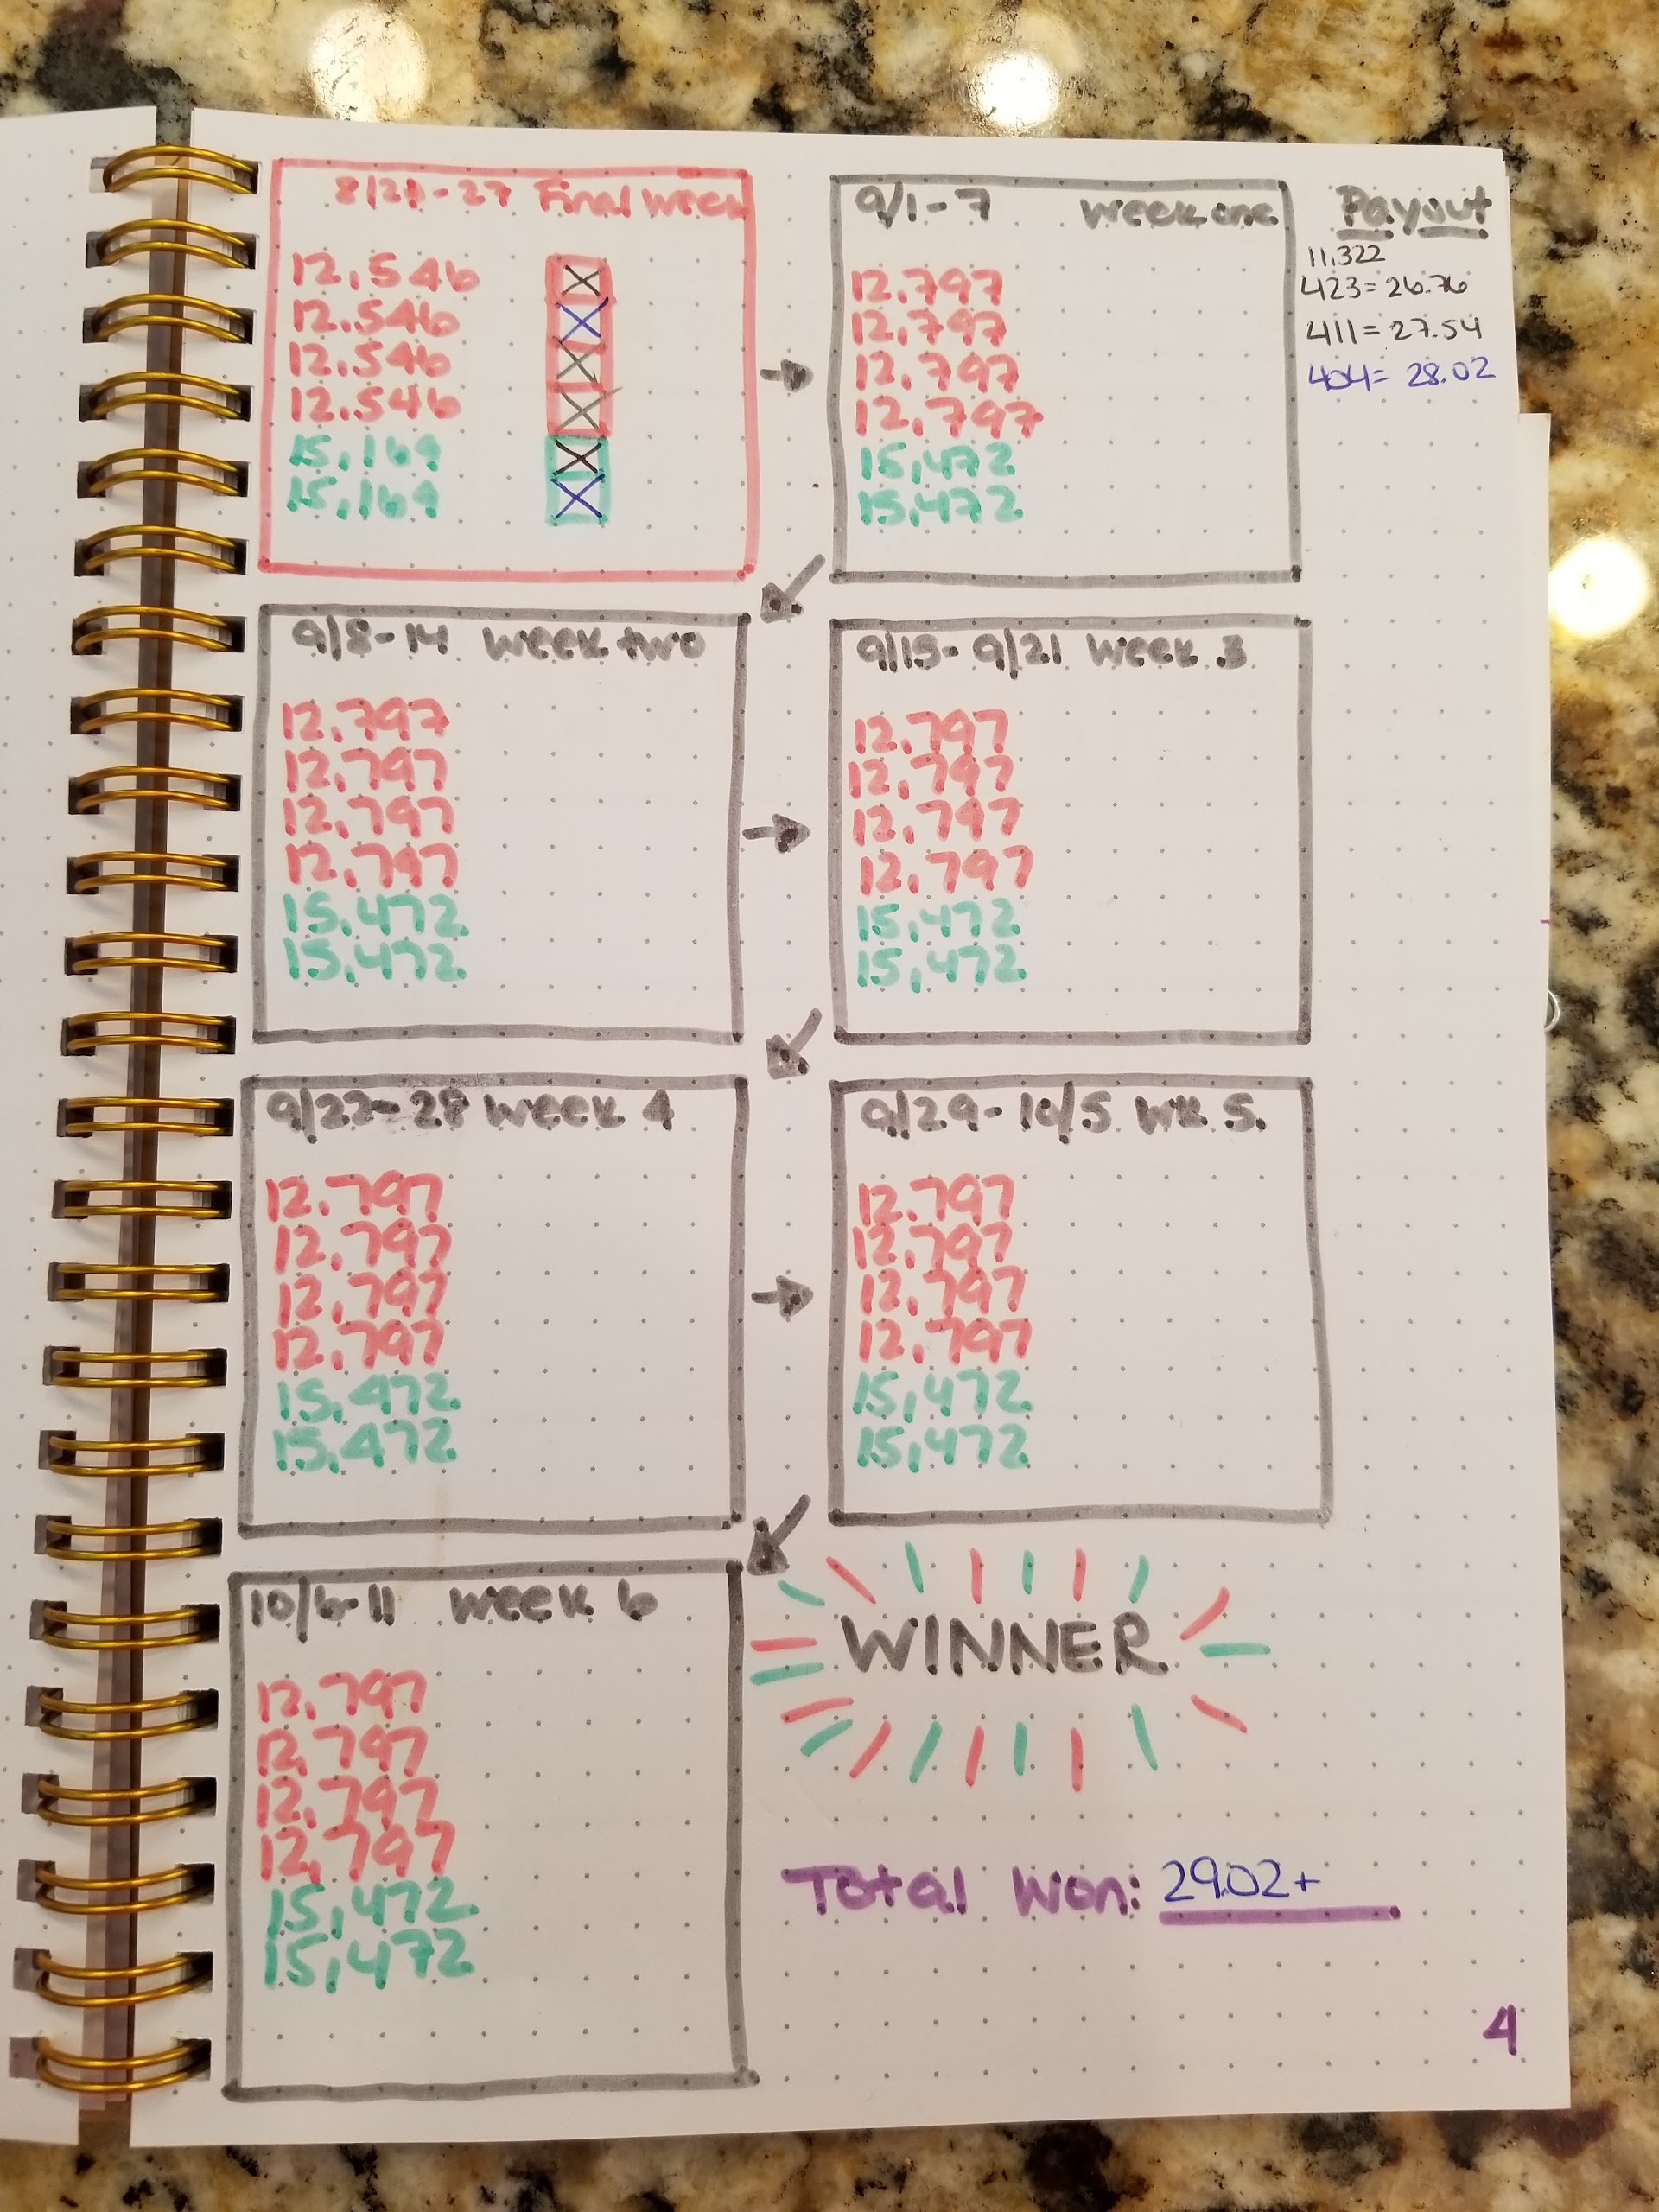 8/21-27 Final Week
12,546
12,546
12,546
12,546
15,169
15,169
9/1-7 Week one
12,797
12,797
12,797
12,797
15,472
15,472
Payout
11,322
423=26.76
411=27.54
404= 28.02
9/8-14 Week two
12,797
12,797
12,797
12,797
15,472
15,472
9/15-9/21 Week 3
12,797
12,797
12,797
12,797
15,472
15,472
9/22-28 Week 4
12,797
12,797
12,797
12,797
15,472
15,472
9/29-10/5 WK 5
12,797
12,797
12,797
12,797
15,472
15,472
10/6-11 Week 6
12,797
12,797
12,797
12,797
15,472
15,472
WINNER
Total Won: 29.02+
4